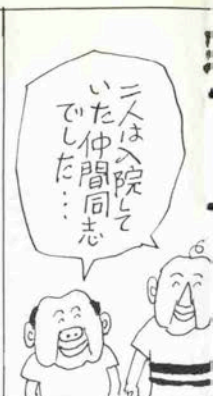 二人は入院して
いた仲間同志
でした・・・